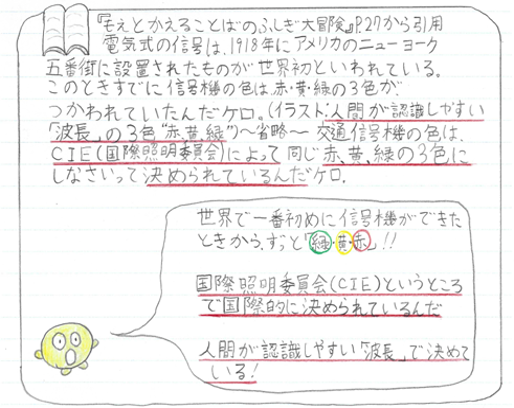 『もえとかえることばのふしぎ大冒険』P.27から引用
電気式の信号は、1918年にアメリカのニューヨーク
五番街に設置されたものが世界初といわれている。
このときすでに信号機の色は赤・黄・緑の3色が
つかわれていたんだケロ。(イラスト:人間が認識しやすい
「波長」の3色"赤、黄、緑")～省略～ 交通信号機の色は、
CIE(国際照明委員会)によって 同じ赤、黄、緑の3色に
しなさいって決められているんだケロ.
世界で一番初めに信号機ができた
ときから、ずっと「緑・黄・赤」!!
国際照明委員会(CIE)というところ
で国際的に決められているんだ
人間が認識しやすい「波長」で決めて
いる!